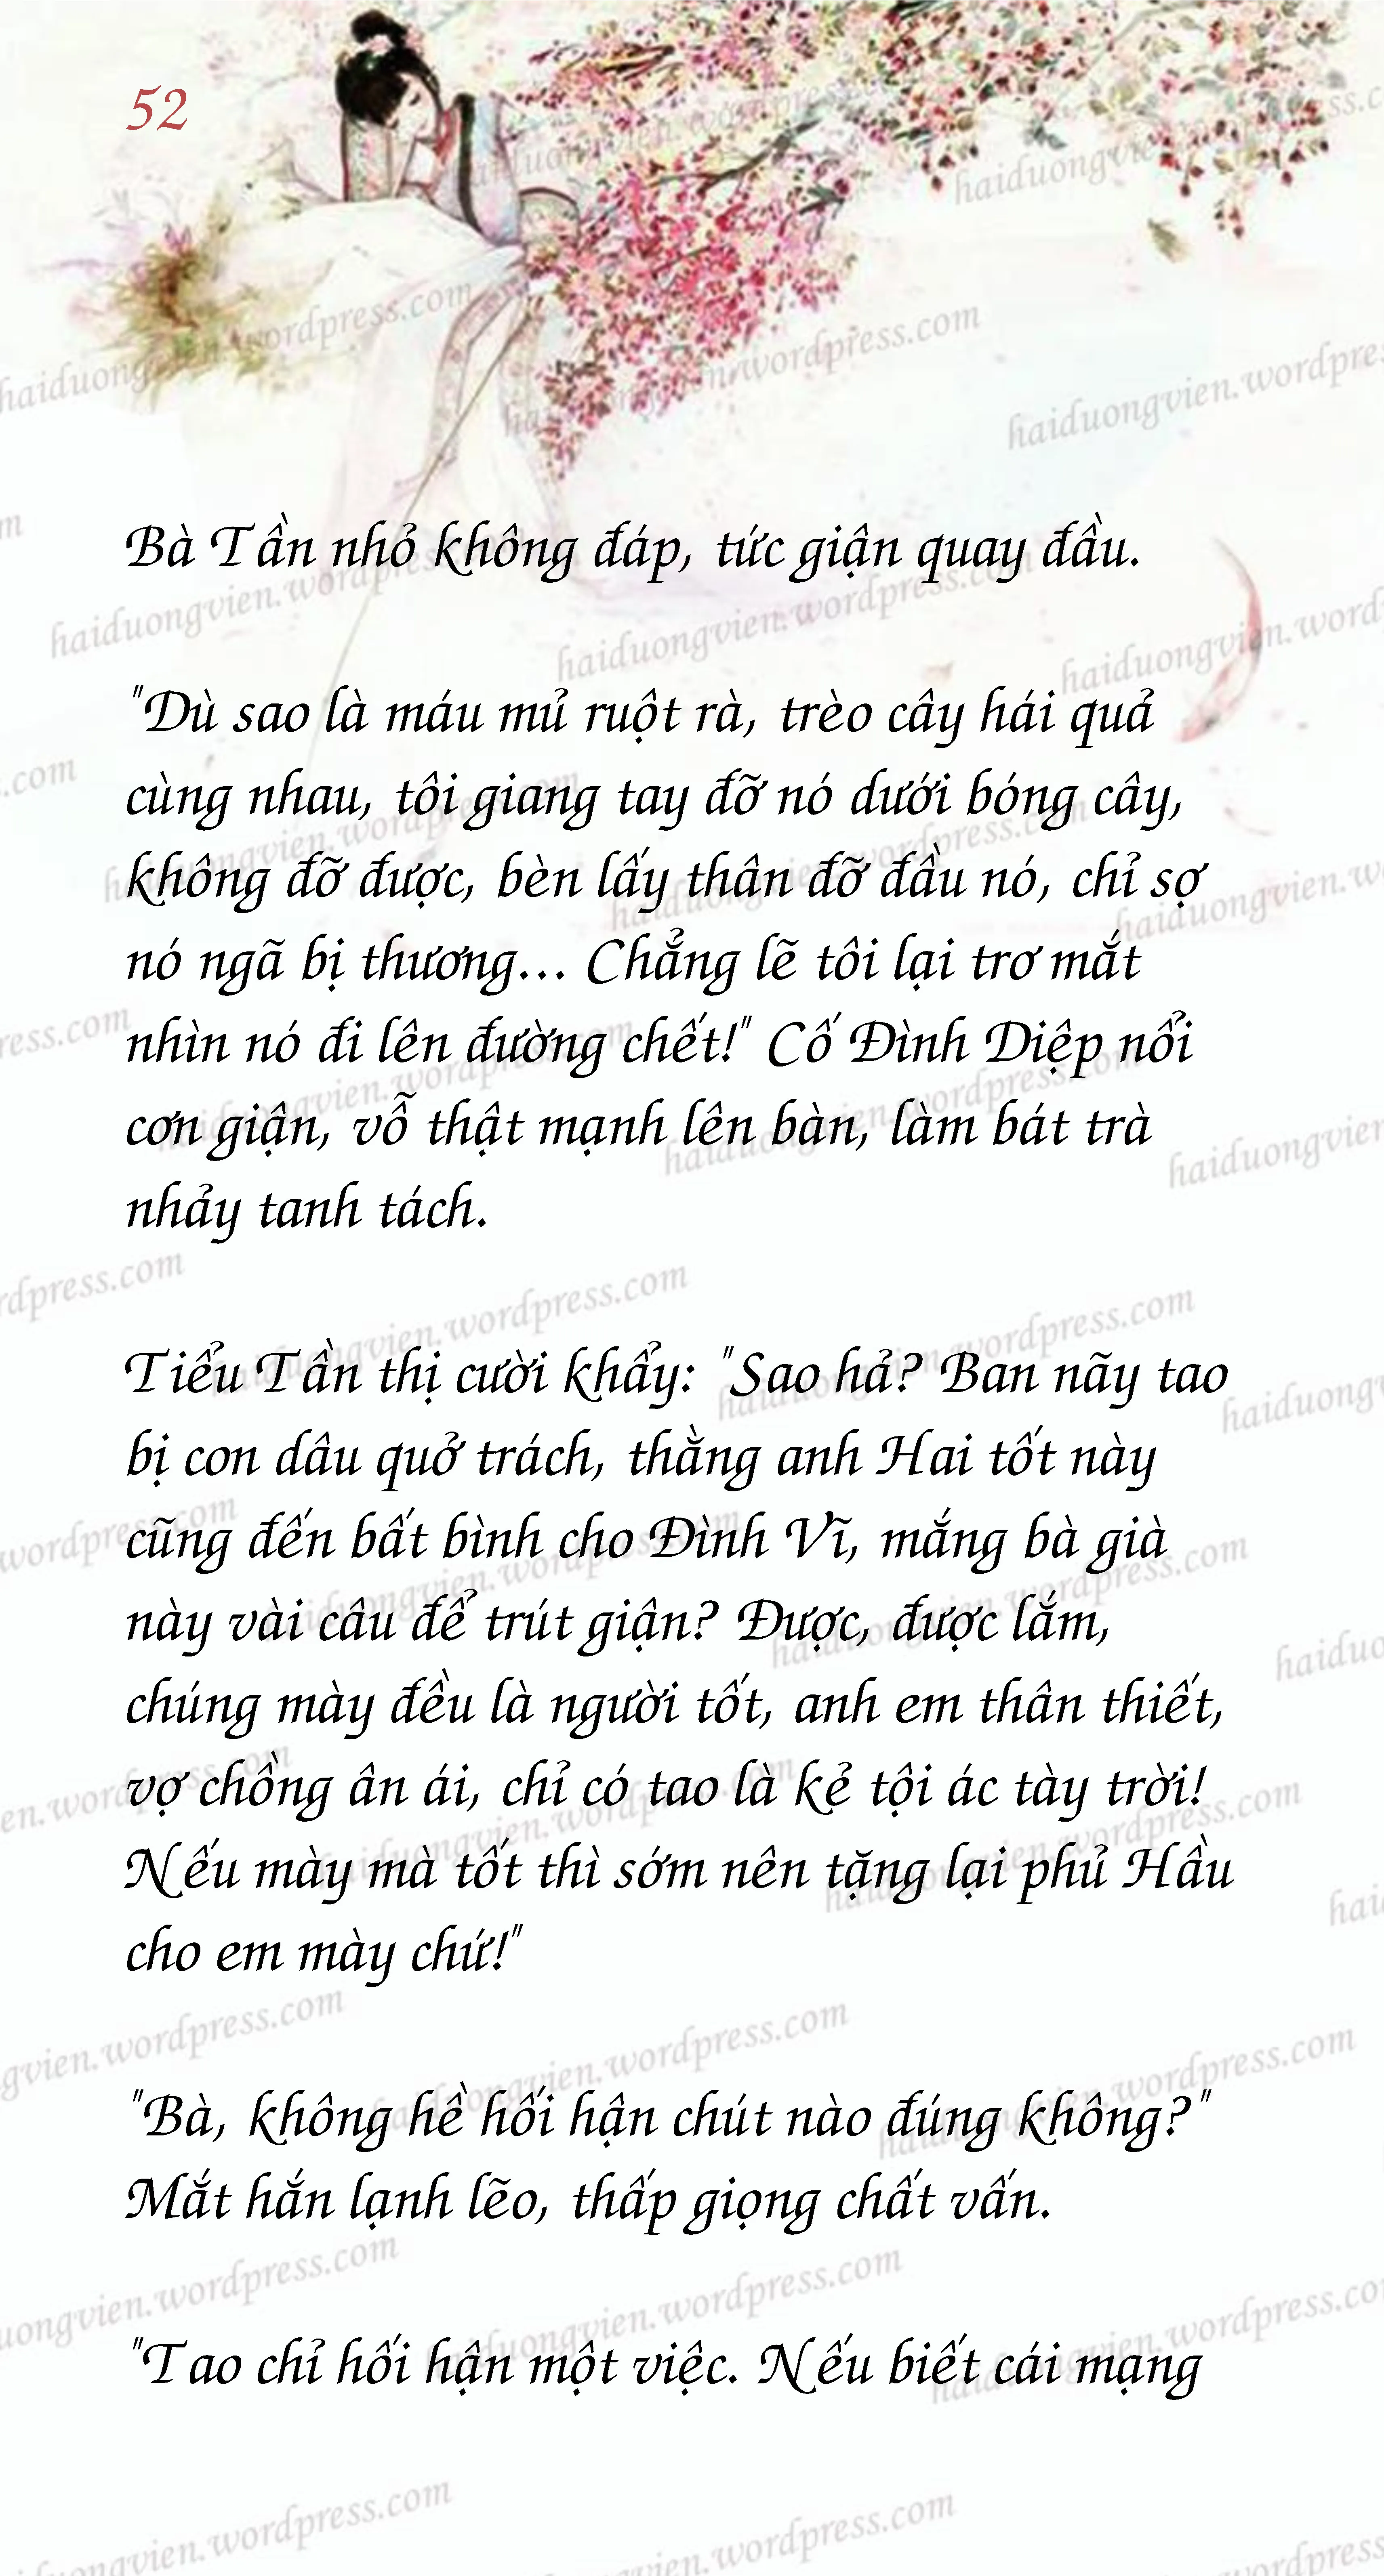 52
Bà Tần nhỏ không đáp, tức giận quay đầu.
"Dù sao là máu mủ ruột rà, trèo cây hái quả
cùng nhau, tôi giang tay đỡ nó dưới bóng cây,
không đỡ được, bèn lấy thân đỡ đầu nó, chỉ sợ
nó ngã bị thương... Chẳng lẽ tôi lại trơ mắt
nhìn nó đi lên đường chết!" Cố Đình Diệp nổi
cơn giận, vỗ thật mạnh lên bàn, làm bát trà
nhảy tanh tách.
Tiểu Tần thị cười khẩy: "Sao hả? Ban nãy tao
bị con dâu quở trách, thằng anh Hai tốt này
cũng đến bất bình cho Đình Vĩ, mắng bà già
này vài câu để trút giận? Được, được lắm,
chúng mày đều là người tốt, anh em thân thiết,
vợ chồng ân ái, chỉ có tao là kẻ tội ác tày trời!
Nếu mày mà tốt thì sớm nên tặng lại phủ Hầu
cho em mày chứ!"
"Bà, không hề hối hận chút nào đúng không?"
Mắt hắn lạnh lẽo, thấp giọng chất vấn.
"Tao chỉ hối hận một việc. Nếu biết cái mạng
haiduongvien.wordpress.com